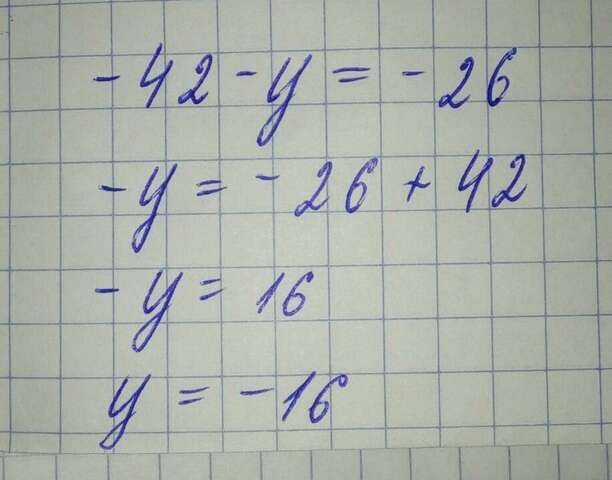 -42 - y = -26
-y = -26 + 42
-y = 16
y = -16